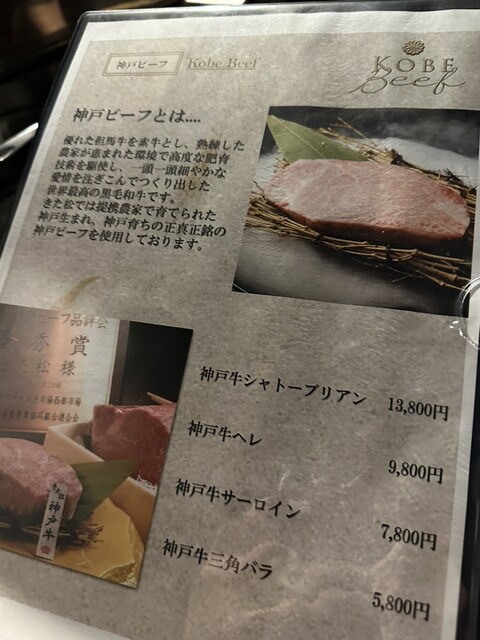 神戸ビーフ Kobe Beef
KOBE
Beef
神戸ビーフとは....
優れた但馬牛を素牛とし、熟練した
農家が恵まれた環境で高度な肥育
技術を駆使し、一頭一頭細やかな
愛情を注ぎこんでつくり出した
世界最高の黒毛和牛です。
きた松では提携農家で育てられた
神戸生まれ、神戸育ちの正真正銘の
神戸ビーフを使用しております。
ーフ品評会
秀賞
松 様
神戸牛
神戸牛シャトーブリアン 13,800円
神戸牛ヘレ 9,800円
神戸牛サーロイン 7,800円
神戸牛三角バラ 5,800円